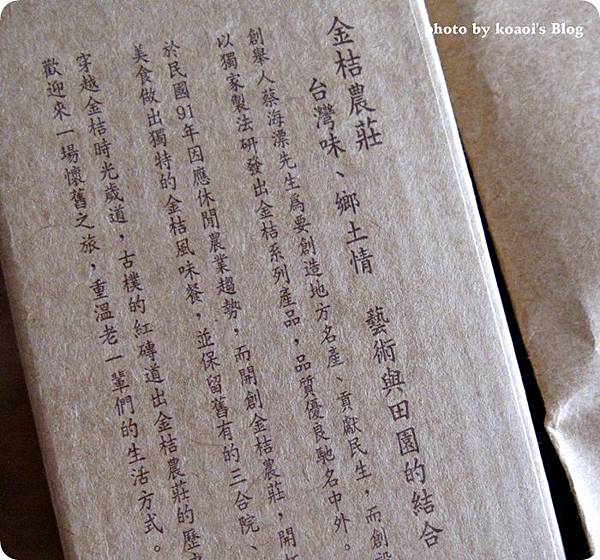 photo by koaoi's Blog
金桔農莊
台灣味、鄉土情　藝術與田園的結合
創舉人蔡海漂先生為要創造地方名產、貢獻民生，而創設
以獨家製法研發出金桔系列產品，品質優良馳名中外。
於民國91年因應休閒農業趨勢，而開創金桔農莊，開
美食做出獨特的金桔風味餐，並保留舊有的三合院、
穿越金桔時光歲道，古樸的紅磚道出金桔農莊的歷
歡迎來一場懷舊之旅，重溫老一輩們的生活方式。